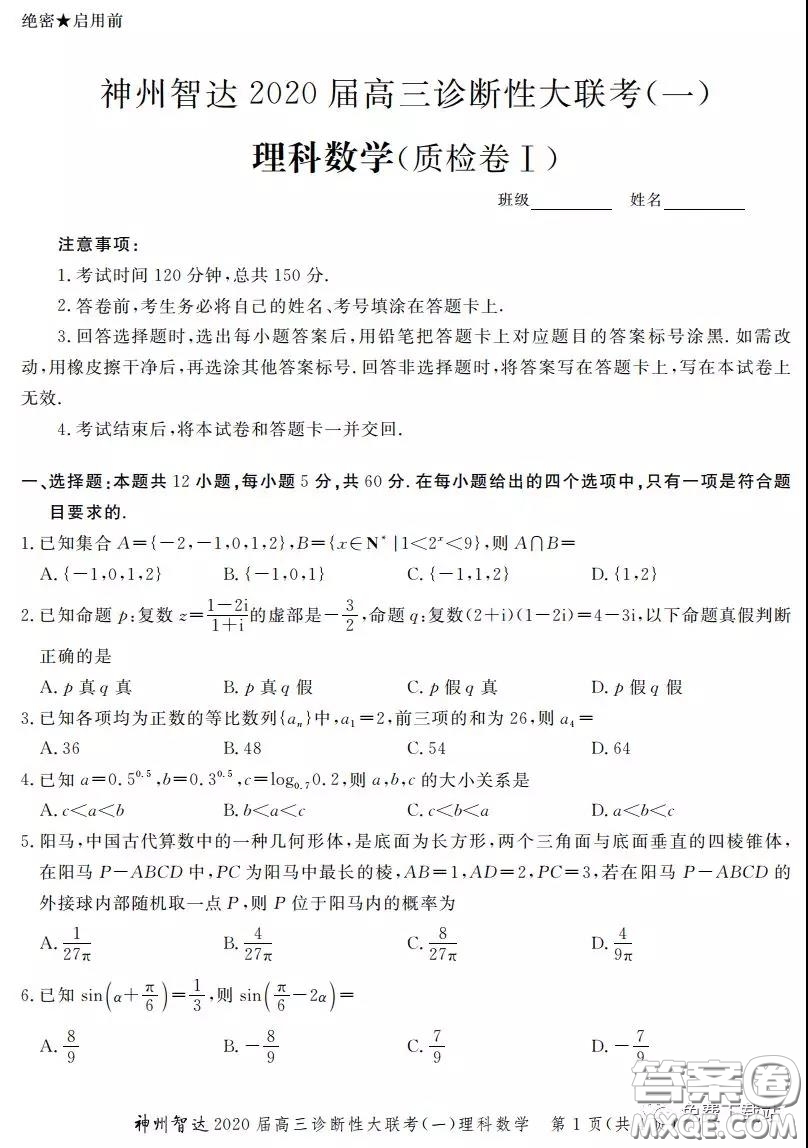 绝密★启用前
神州智达 2020 届高三诊断性大联考(一)
理科数学(质检卷Ⅰ)
班级________ 姓名________
注意事项:
1. 考试时间 120 分钟,总共 150 分.
2. 答卷前,考生务必将自己的姓名、考号填涂在答题卡上.
3. 回答选择题时,选出每小题答案后,用铅笔把答题卡上对应题目的答案标号涂黑. 如需改
动,用橡皮擦干净后,再选涂其他答案标号. 回答非选择题时,将答案写在答题卡上,写在本试卷上
无效.
4. 考试结束后,将本试卷和答题卡一并交回.
一、选择题:本题共 12 小题,每小题 5 分,共 60 分. 在每小题给出的四个选项中,只有一项是符合题
目要求的.
1. 已知集合 A={-2,-1,0,1,2},B={x∈N*|1<2^x<9},则 A∩B=
A. {-1,0,1,2} B. {-1,0,1} C. {-1,1,2} D. {1,2}
2. 已知命题 p:复数 z=(1-2i)/(1+i)的虚部是-3/2,命题 q:复数(2+i)(1-2i)=4-3i,以下命题真假判断
正确的是
A. p 真 q 真 B. p 真 q 假 C. p 假 q 真 D. p 假 q 假
3. 已知各项均为正数的等比数列{aₙ}中,a₁=2,前三项的和为 26,则 a₄=
A. 36 B. 48 C. 54 D. 64
4. 已知 a=0.5^0.5,b=0.3^0.5,c=log_0.7 0.2,则 a,b,c 的大小关系是
A. c<a<b B. b<a<c C. c<b<a D. a<b<c
5. 阳马,中国古代算数中的一种几何形体,是底面为长方形,两个三角面与底面垂直的四棱锥体,
在阳马 P-ABCD 中,PC 为阳马中最长的棱,AB=1,AD=2,PC=3,若在阳马 P-ABCD 的
外接球内部随机取一点 P,则 P 位于阳马内的概率为
A. 1/(27π) B. 4/(27π) C. 8/(27π) D. 4/(9π)
6. 已知 sin(α+π/6)=1/3,则 sin(π/6-2α)=
A. 8/9 B. -8/9 C. 7/9 D. -7/9
神州智达 2020 届高三诊断性大联考(一)理科数学 第 1 页(共
答案圈
免费下载站
MXQE.COM